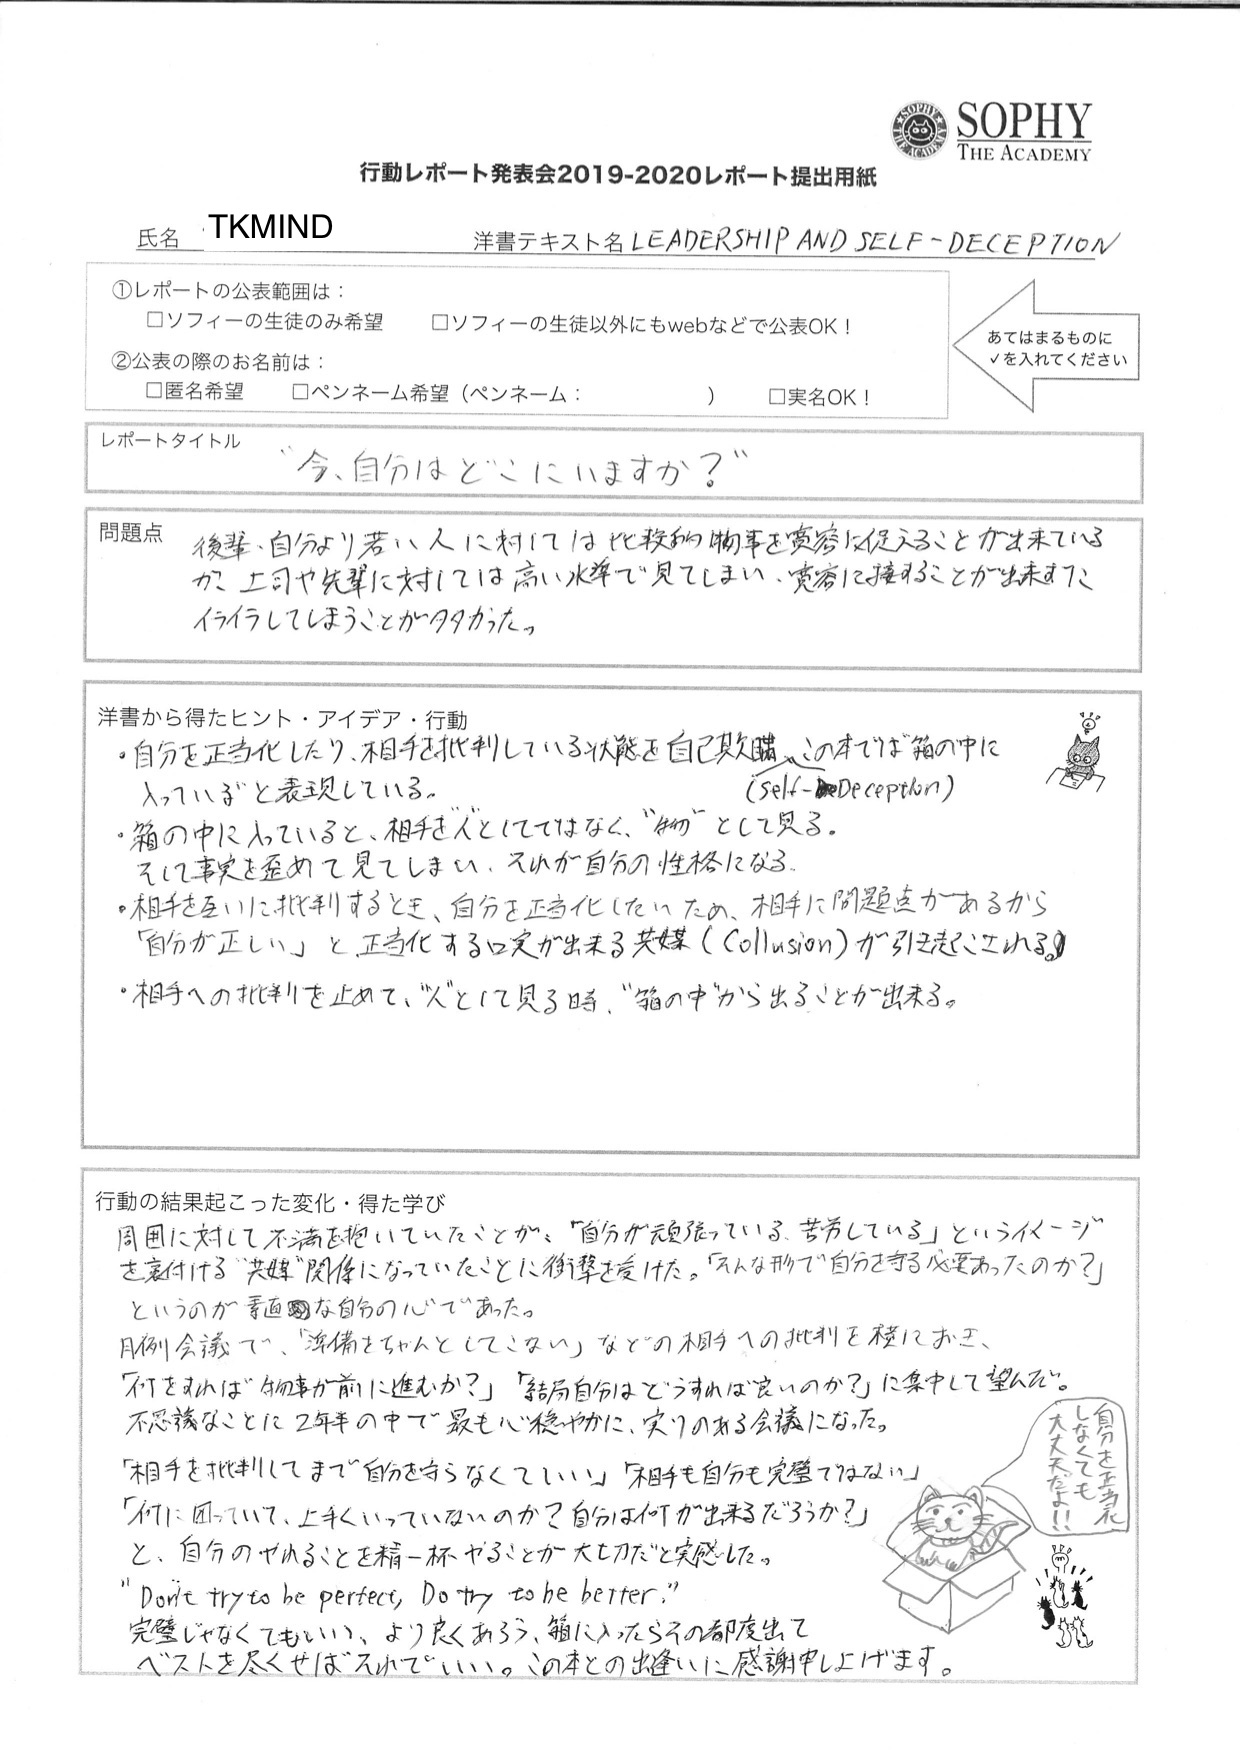 SOPHY
THE ACADEMY
行動レポート発表会2019-2020レポート提出用紙
氏名 TKMIND 洋書テキスト名 LEADERSHIP AND SELF-DECEPTION
①レポートの公表範囲は：
□ソフィーの生徒のみ希望 □ソフィーの生徒以外にもwebなどで公表OK！
②公表の際のお名前は：
□匿名希望 □ペンネーム希望（ペンネーム： ） □実名OK！
あてはまるものに
✓を入れてください
レポートタイトル
"今、自分はどこにいますか？"
問題点
後輩、自分より若い人に対しては比較的物事を寛容に捉えることが出来ている
が、上司や先輩に対しては高い水準で見てしまい、寛容に接することが出来ずに
イライラしてしまうことが多かった。
洋書から得たヒント・アイデア・行動
・自分を正当化したり、相手を批判している状態を自己欺瞞、この本では"箱の中に
(Self-Deception)
入っている"と表現している。
・箱の中に入っていると、相手を"人"としてではなく、"物"として見る。
そして事実を歪めて見てしまい、それが自分の性格になる。
・相手を互いに批判するとき、自分を正当化したいため、相手に問題点があるから
「自分が正しい」と正当化する口実が出来る共謀（Collusion）が引き起こされる。
・相手への批判を止めて、"人"として見る時、"箱の中"から出ることが出来る。
行動の結果起こった変化・得た学び
周囲に対して不満を抱いていたことが、「自分が頑張っている、苦労している」というイメージ
を裏付ける"共謀"関係になっていたことに衝撃を受けた。「そんな形で自分を守る必要あったのか？」
というのが素直な自分の心であった。
月例会議で、「準備をちゃんとしてこない」などの相手への批判を横におき、
「何をすれば物事が前に進むか？」「結局自分はどうすれば良いのか？」に集中して望んだ。
不思議なことに2年半の中で最も心穏やかに、実りのある会議になった。
「相手を批判してまで自分を守らなくていい」「相手も自分も完璧ではない」
「何に困っていて、上手くいっていないのか？自分は何が出来るだろうか？」
と、自分のやれることを精一杯やることが大切だと実感した。
"Don't try to be perfect, Do try to be better."
完璧じゃなくてもいい、より良くあろう、箱に入ったらその都度出て
ベストを尽くせばそれでいい。この本との出逢いに感謝申し上げます。
自分を正当化
しなくても
大丈夫だよ!!